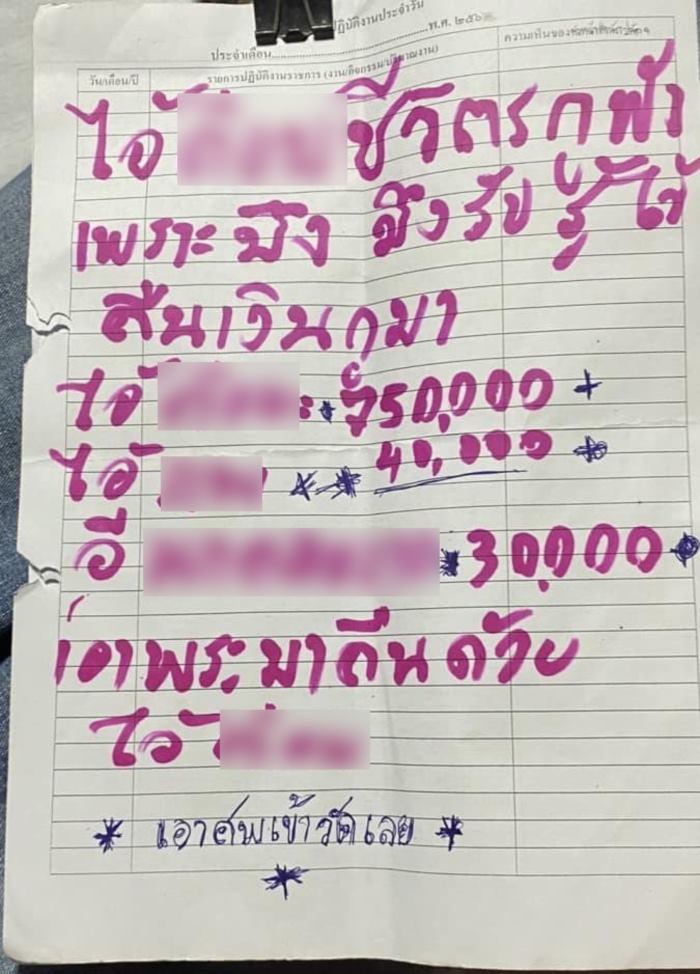 ปฏิบัติงานประจำวัน
ประจำเดือน....................พ.ศ. ๒๕๖
วัน/เดือน/ปี รายการปฏิบัติงานราชการ (งาน/กิจกรรม/ปริมาณงาน) ความเห็นของ
ไอ้ ชีวิตรกูฟัง
เพราะมึง มึงรับ รู้ไว้
สืนเงินกูมา
ไอ้ 750,000 +
ไอ้ 40,000
อี 30,000
เอาพระมาถืนด้วย
ไอ้
* เอาศพเข้าวัดเลย *
*